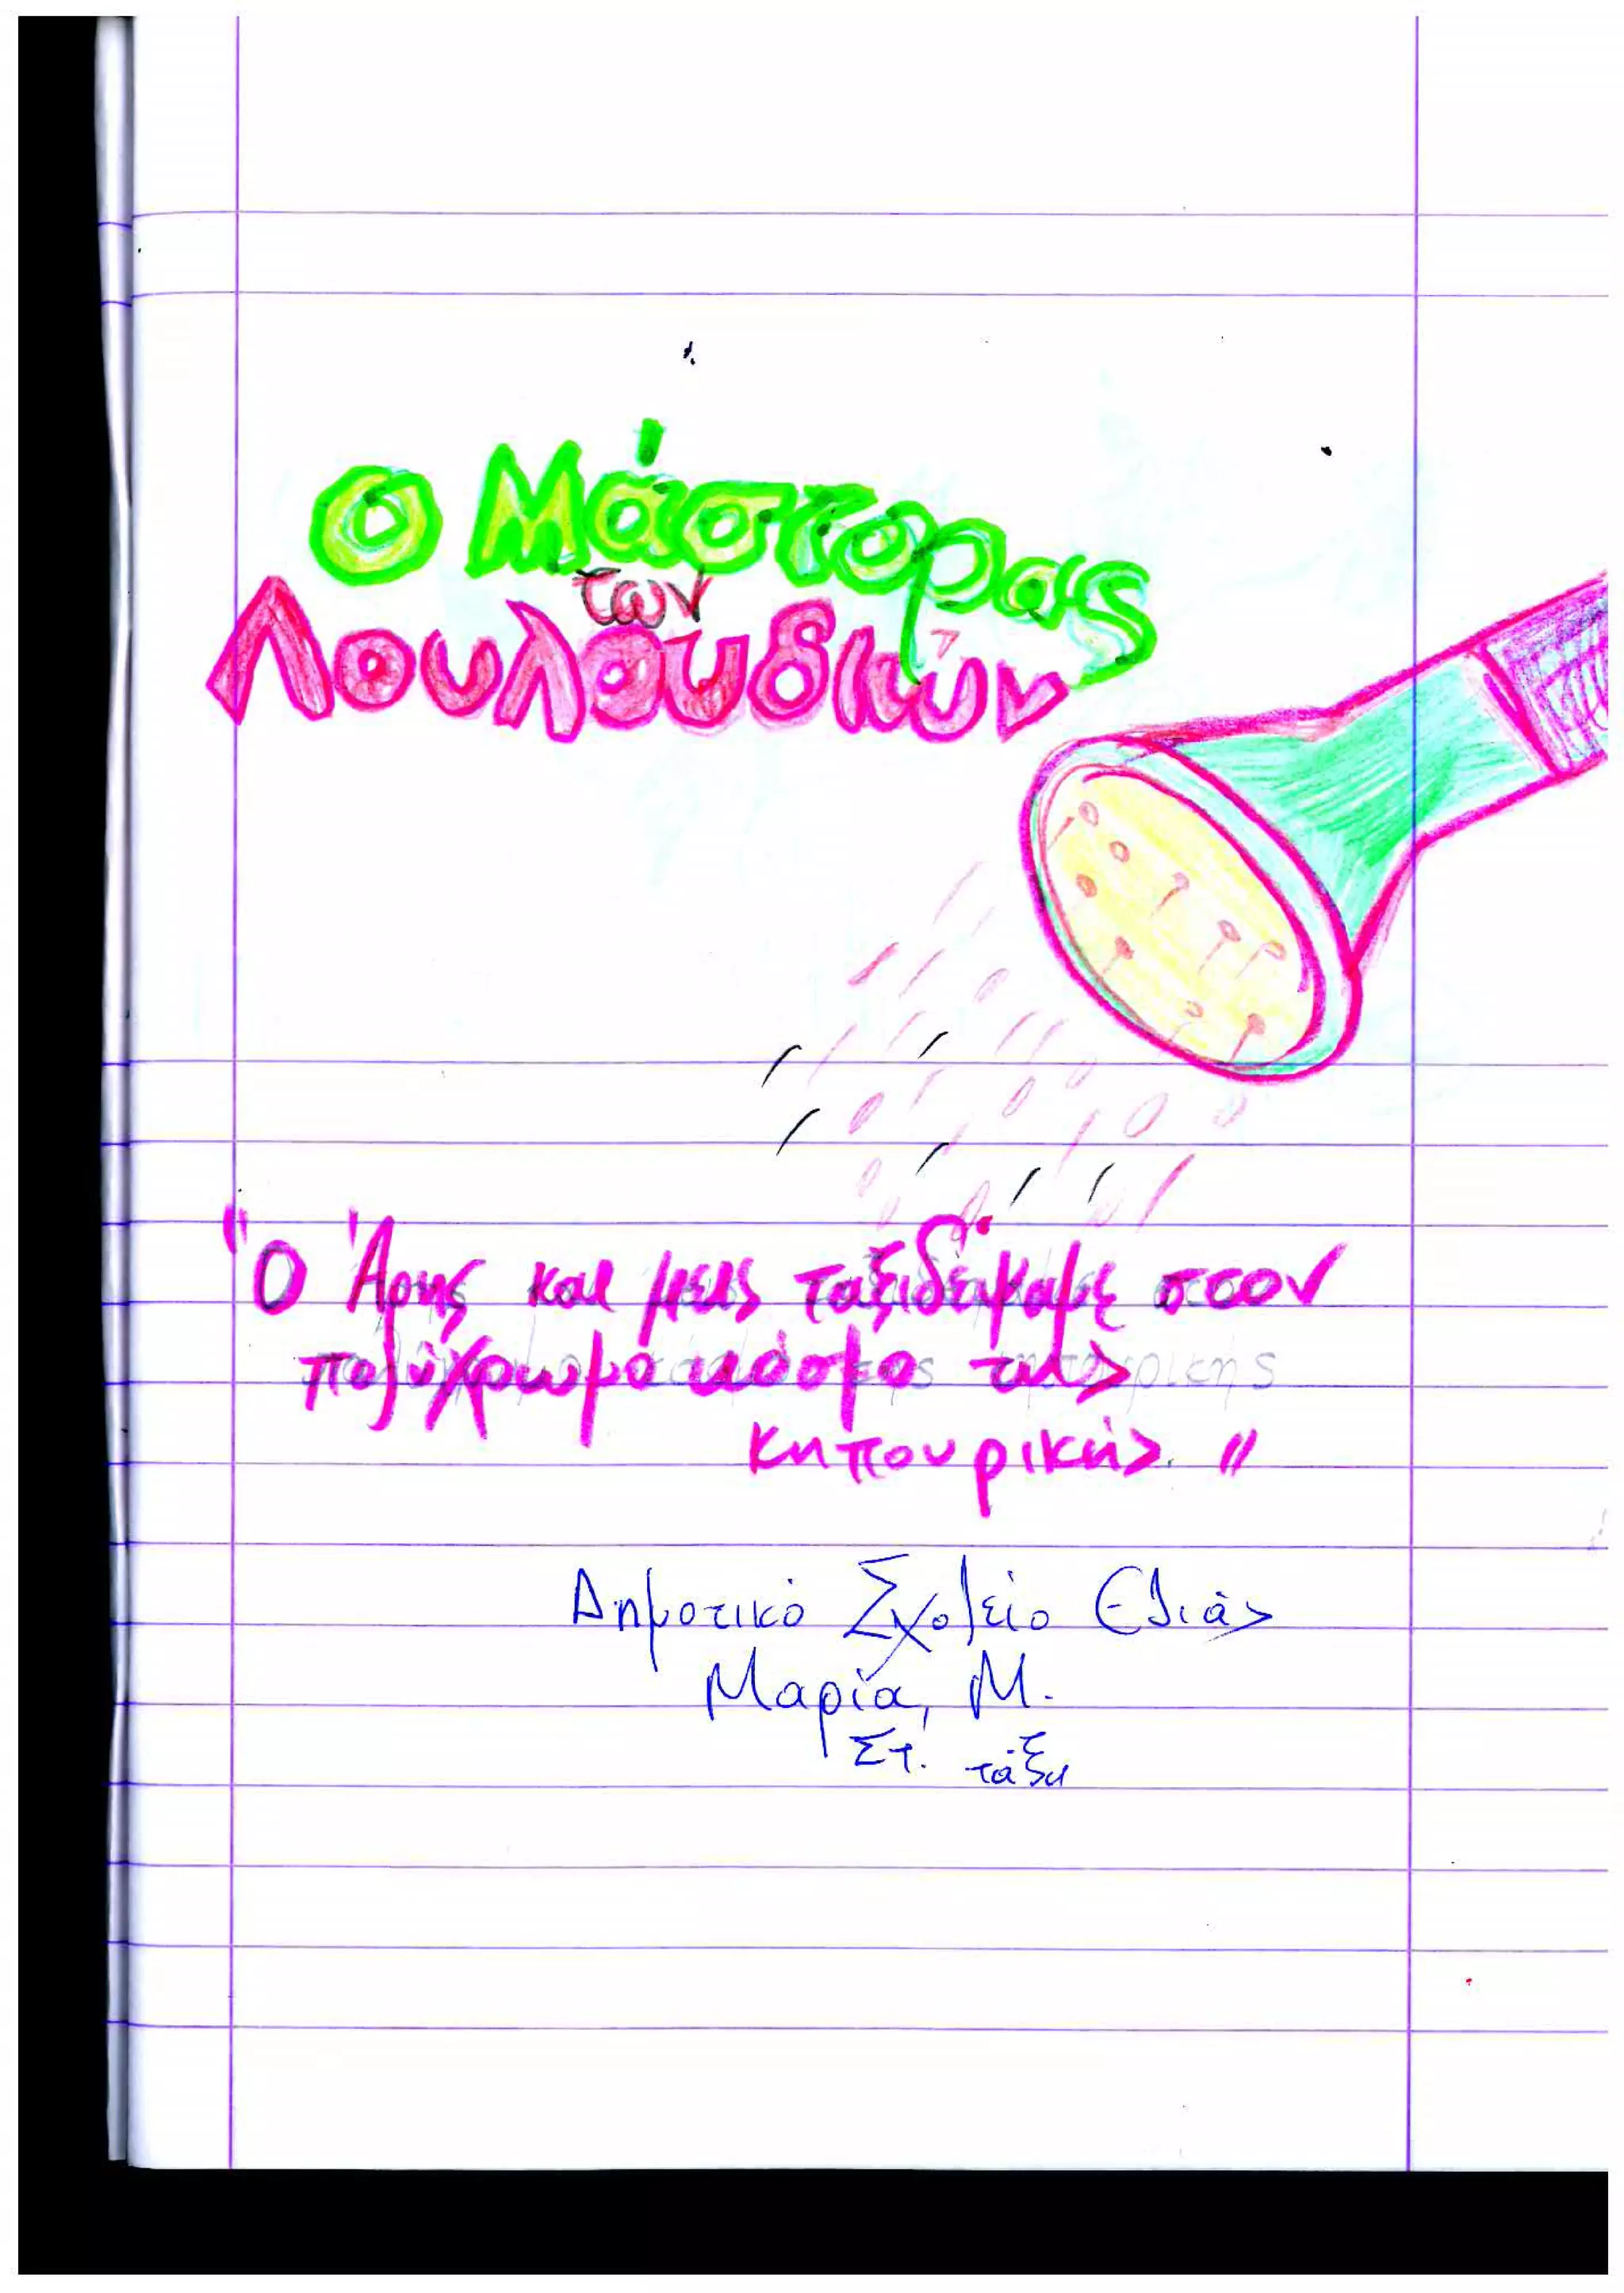 Ο Μάστορας
των
Λουλουδιών
"Ο Άρης και μεις ταξιδέψαμε στον
πολύχρωμο κόσμο της
κηπουρικής. "
Δημοτικό Σχολείο Ελιάς
Μαρία, Μ.
Στ. τάξη